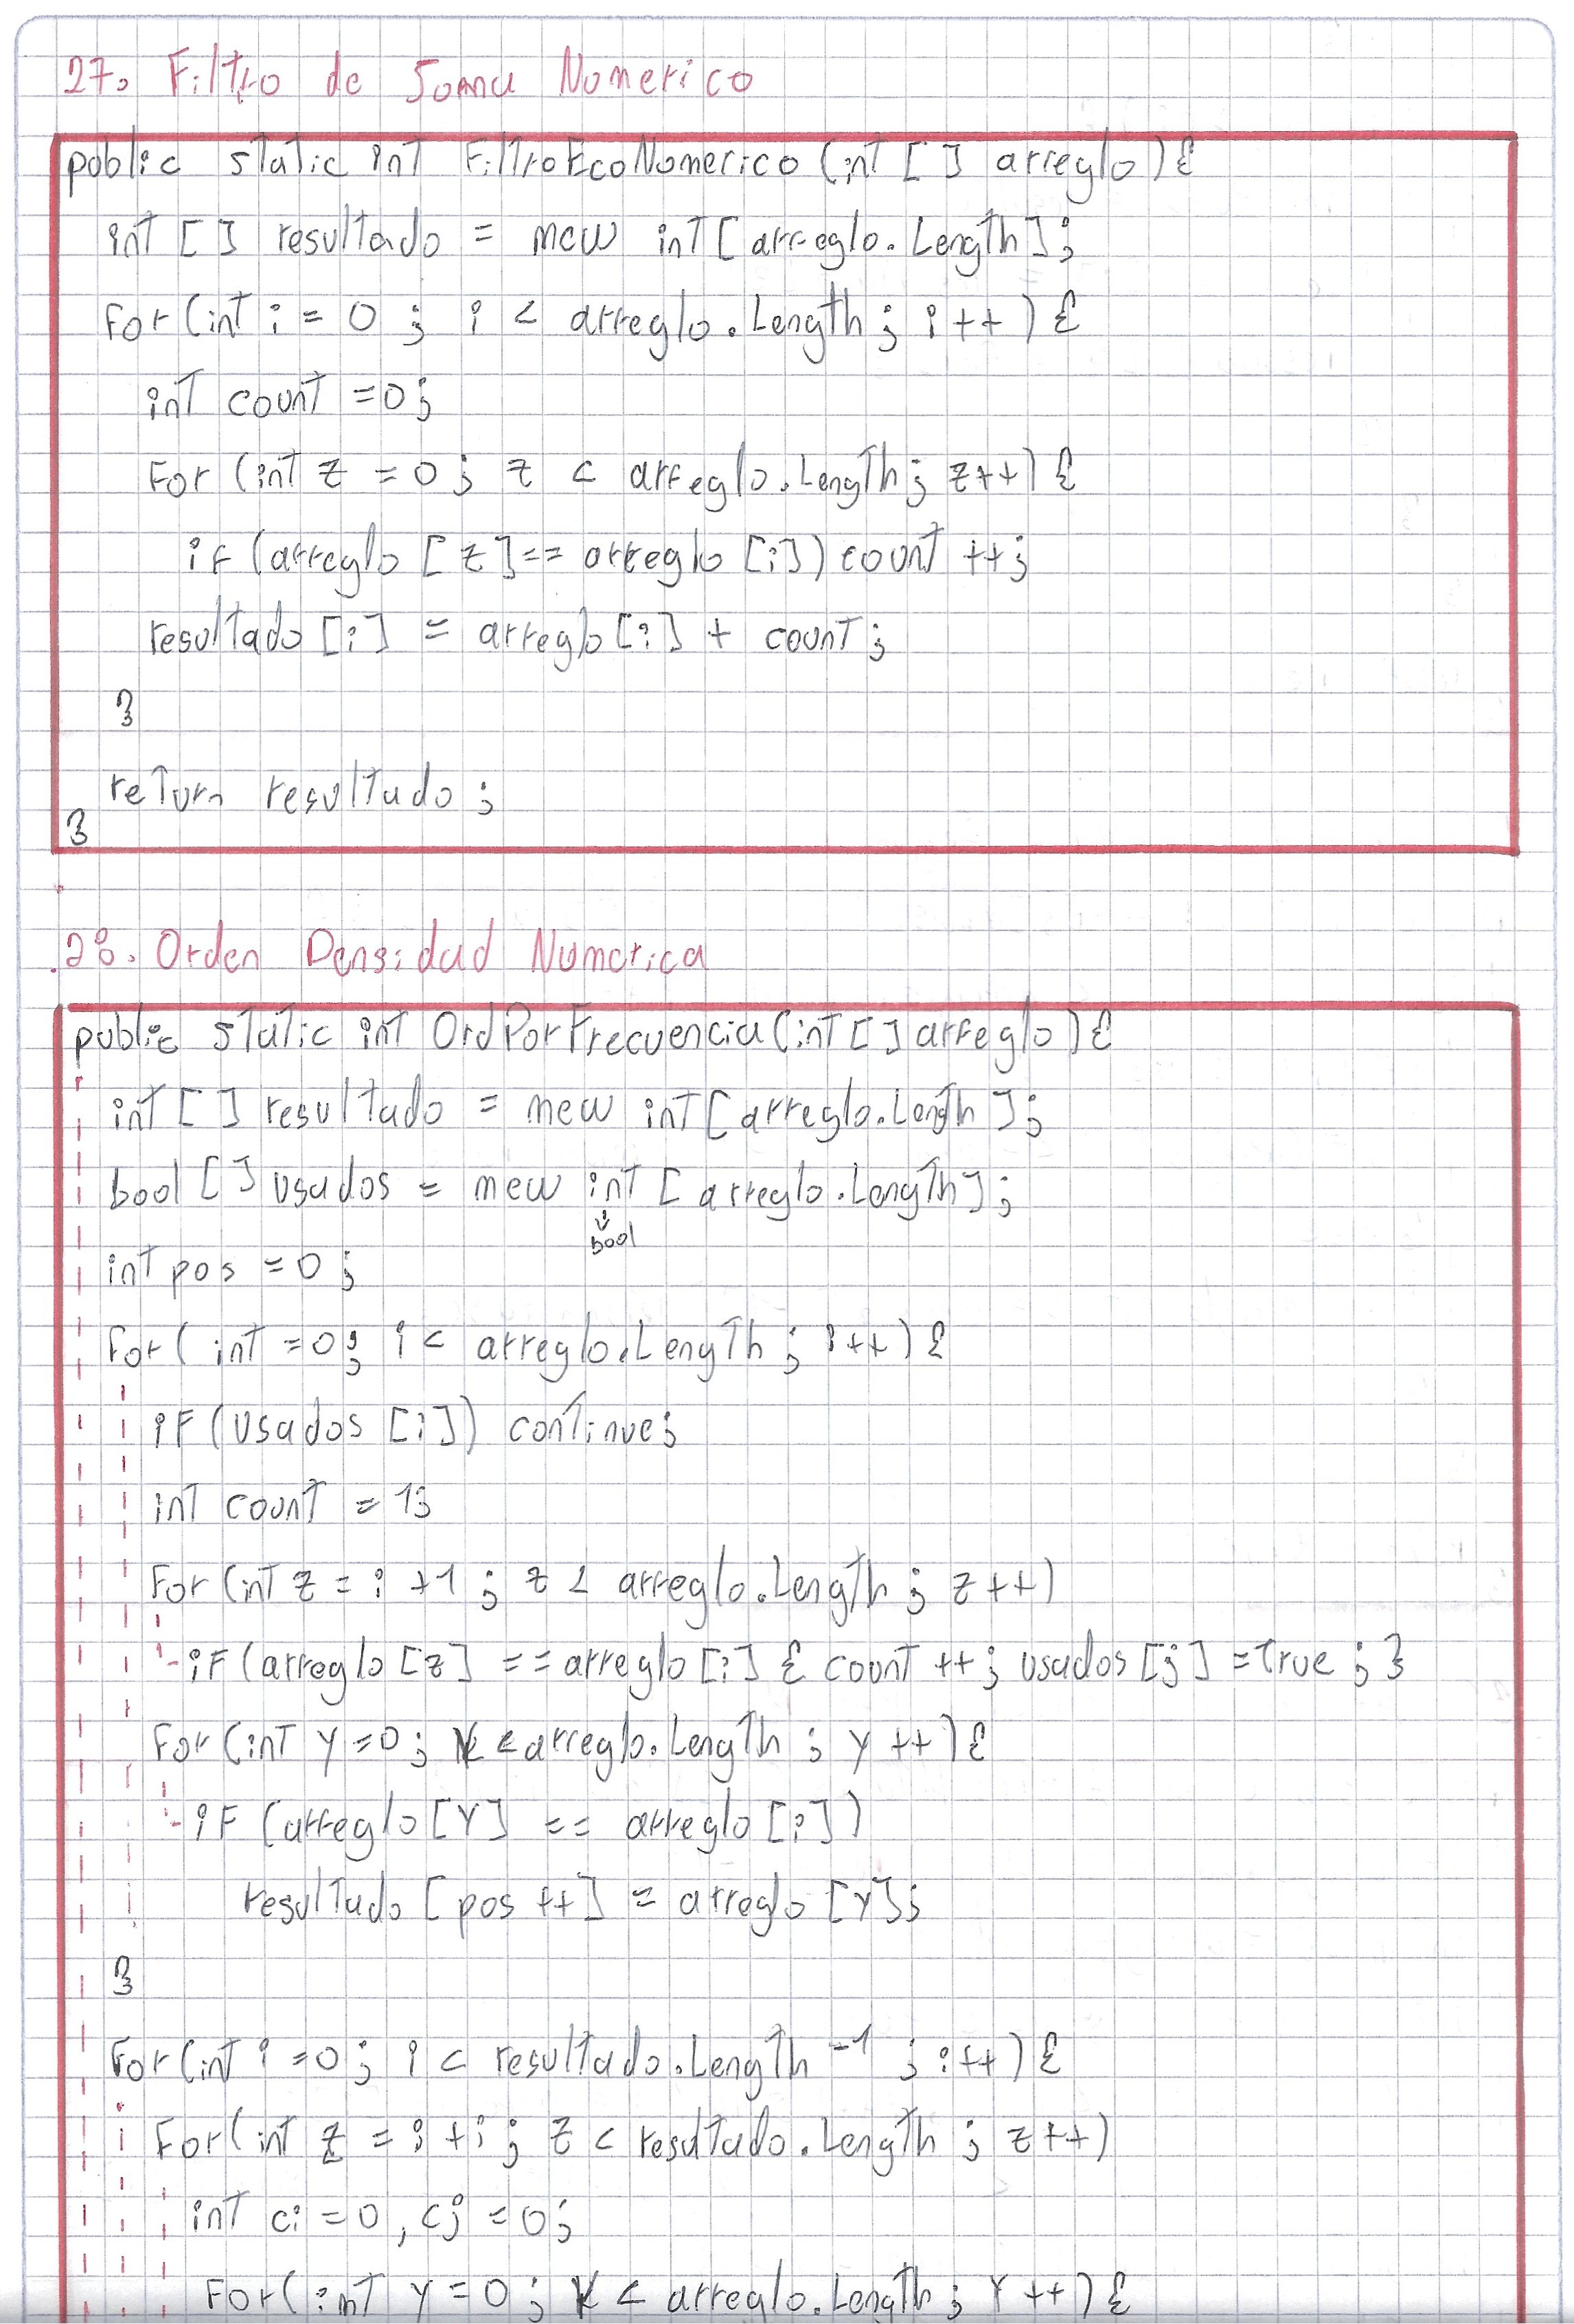 27. Filtro de Soma Numerico
public static int FiltroEcoNumerico (int [] arreglo) {
int [] resultado = new int [arreglo.Length];
for (int i = 0 ; i < arreglo.Length ; i++) {
int count = 0;
for (int z = 0 ; z < arreglo.Length ; z++) {
if (arreglo [z] == arreglo [i]) count ++;
resultado [i] = arreglo [i] + count ;
}
return resultado ;
}
28. Orden Densidad Numerica
public static int OrdPorFrecuencia (int [] arreglo) {
int [] resultado = new int [arreglo.Length ];
bool [] usados = new int [arreglo.Length];
bool
int pos = 0 ;
for ( int = 0; i < arreglo.Length ; i++) {
if (usados [i]) continue;
int count = 1;
for (int z = i +1 ; z < arreglo.Length ; z++)
if (arreglo [z] == arreglo [i] { count ++ ; usados [j] = true ; }
for (int y = 0 ; y < arreglo.Length ; y ++) {
if (arreglo [y] == arreglo [i])
resultado [pos ++] = arreglo [y];
}
for (int i = 0 ; i < resultado.Length -1 ; i++) {
for (int z = i +i ; z < resultado.Length ; z++)
int ci = 0 , cj = 0;
for (int y = 0 ; y < arreglo.Length ; y ++) {